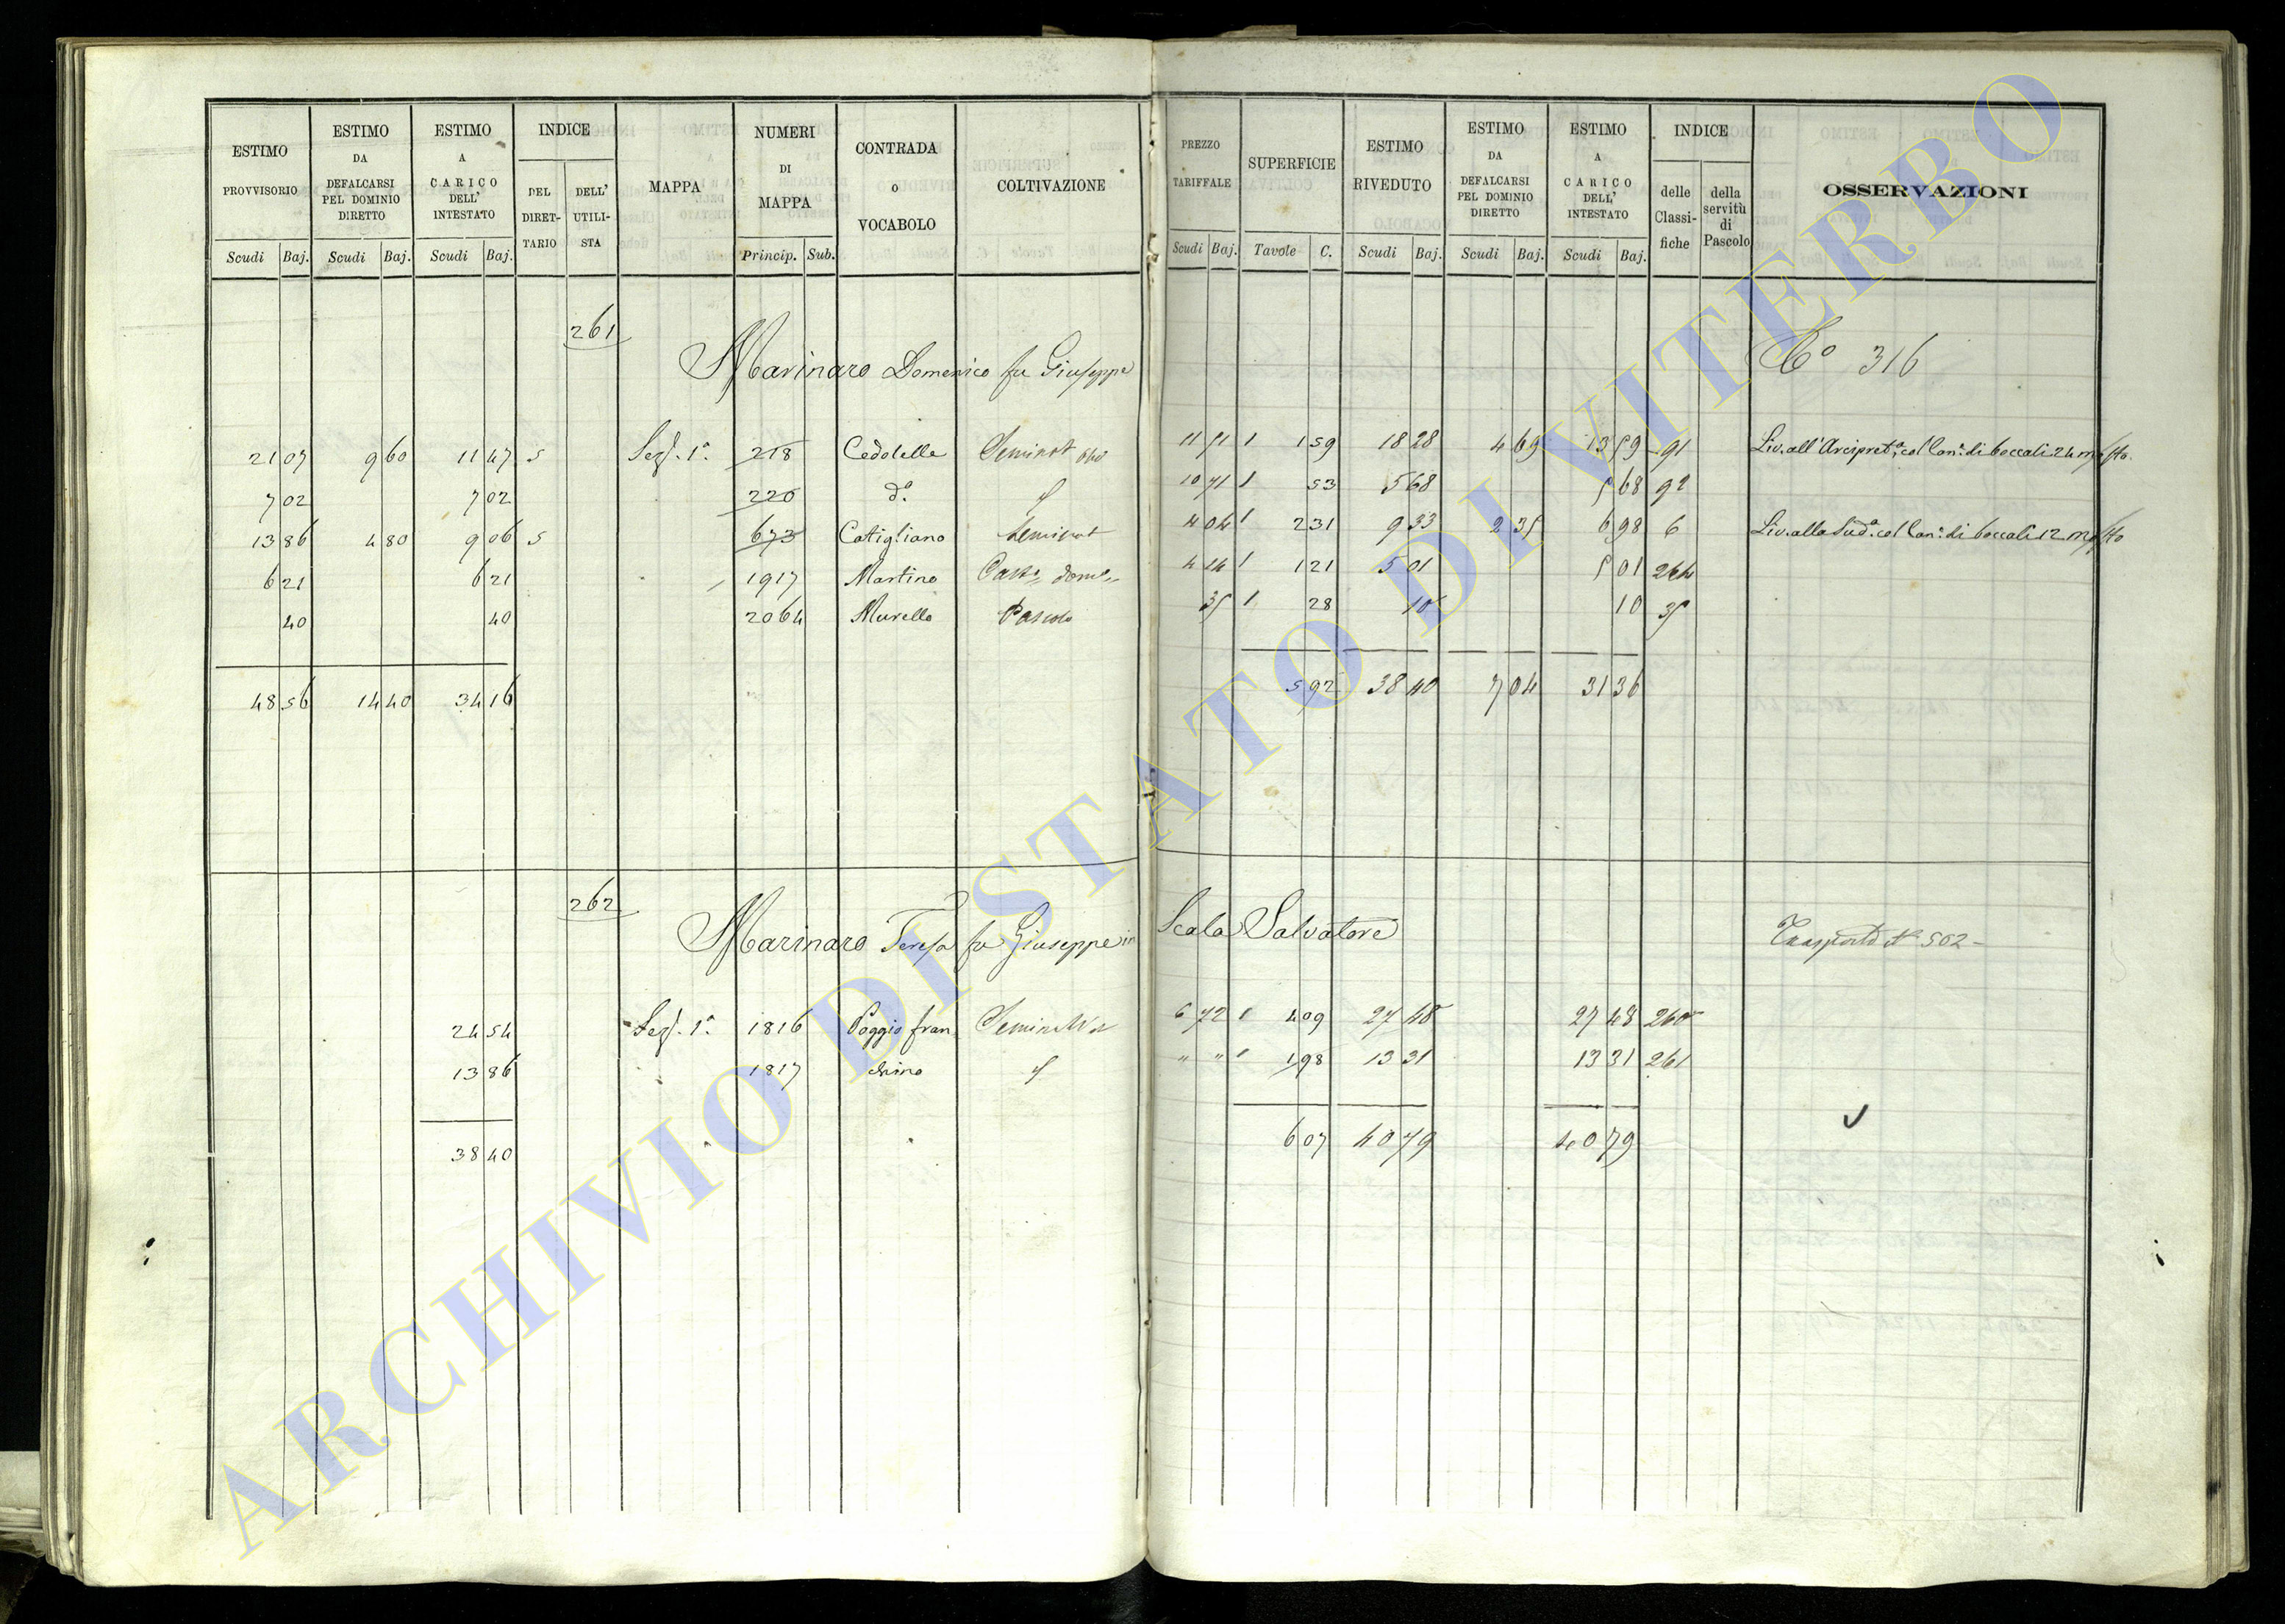 ESTIMO PROVVISORIO | ESTIMO DA DEFALCARSI PEL DOMINIO DIRETTO | ESTIMO A CARICO DELL' INTESTATO | INDICE | MAPPA | NUMERI DI MAPPA | CONTRADA O VOCABOLO | COLTIVAZIONE | PREZZO TARIFFALE | SUPERFICIE | ESTIMO RIVEDUTO | ESTIMO DA DEFALCARSI PEL DOMINIO DIRETTO | ESTIMO A CARICO DELL' INTESTATO | INDICE | OSSERVAZIONI
DEL DIRETTARIO | DELL' UTILISTA | delle Classifiche | della servitù di Pascolo
Scudi | Baj. | Scudi | Baj. | Scudi | Baj. | Princip. | Sub. | Scudi | Baj. | Tavole | C. | Scudi | Baj. | Scudi | Baj. | Scudi | Baj.
261
Marinaro Domenico fu Giuseppe | Co 316
21 07 | 9 60 | 11 47 | 5 | Sez. 1a | 218 | Cedolelle | Seminat | 1 59 | 18 28 | 4 69 | 13 59 | 91 | Liv. all'Arcipret.a col Can.e di boccali 24 mosto
7 02 | 7 02 | 220 | do. | 10 71 | 53 | 5 68 | 5 68 | 92
13 86 | 4 80 | 9 06 | 5 | 673 | Catigliano | Seminat | 4 04 | 2 31 | 9 33 | 2 35 | 6 98 | 6 | Liv. alla Sud.a col Can.e di boccali 12 mosto
6 21 | 6 21 | 1917 | Martino | 4 14 | 1 21 | 5 01 | 5 01 | 264
40 | 40 | 2064 | Murello | Pascolo | 35 | 28 | 10 | 10 | 35
48 56 | 14 40 | 34 16 | 5 92 | 38 40 | 7 04 | 31 36
262
Marinaro Teresa fu Giuseppe in Scala Salvatore | Trasporto N 502
24 54 | Sez. 1a | 1816 | Poggio fran | 6 72 | 4 09 | 27 48 | 27 48 | 260
13 86 | 1817 | chino | " " | 1 98 | 13 31 | 13 31 | 261
38 40 | 6 07 | 40 79 | 40 79
ARCHIVIO DI STATO DI VITERBO